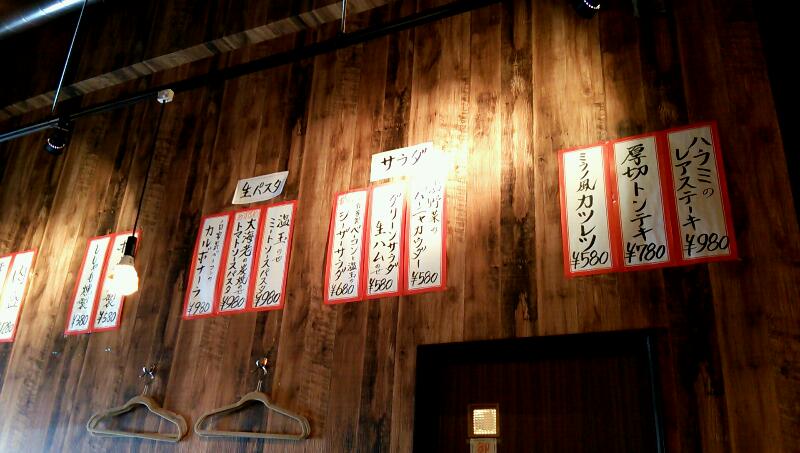 ハラミの
レアステーキ
¥980
厚切トンテキ
¥780
ミラノ風カツレツ
¥580
サラダ
バーニャカウダー
¥580
グリーンサラダ
生ハムのせ
¥580
自家製ベーコンと温玉の
シーザーサラダ
¥680
生パスタ
温玉のせ
ミートソースパスタ
¥980
大海老の炭焼のせ
トマトソースパスタ
¥980
カルボナーラ
¥980
¥580
¥380